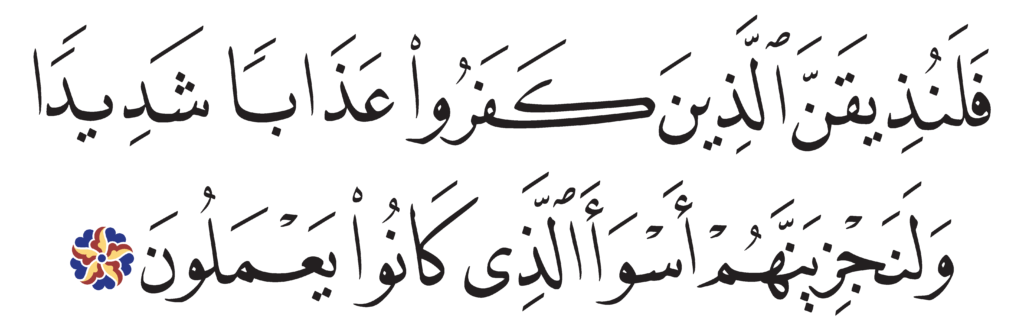 فَلَنُذِيقَنَّ ٱلَّذِينَ كَفَرُوا۟ عَذَابًا شَدِيدًا
وَلَنَجْزِيَنَّهُمْ أَسْوَأَ ٱلَّذِى كَانُوا۟ يَعْمَلُونَ